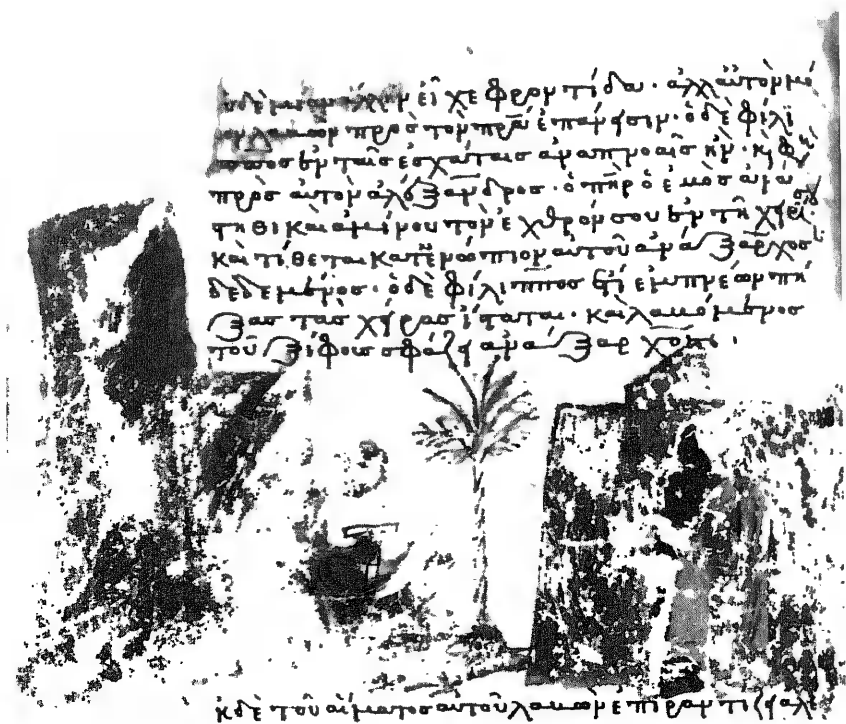 οὐδεμίαν εἶχε φροντίδα· ἀλλ' αὐτὸν μό
νον λαβὼν πρὸς τὸν πρ̅α ἐπάνεισιν· ὁ δὲ φίλι
ππος ἐν ταῖς ἐσχάταις ἀναπνοαῖς ἦν· κ φη
πρὸς αὐτὸν ἀλέξανδρος· ὁ πηρ ὁ ἐμὸς ἀνά
στηθι καὶ ἀμύνου τὸν ἐχθρόν σου ἐν τῇ χειρί σου·
καὶ τίθεται κατενώπιον αὐτοῦ ἀνάξαρχος
δεδεμένος· ὁ δὲ φίλιππος ἔτι ἐμπνέων πή
ξας τὰς χεῖρας ἵσταται· καὶ λαβόμενος
τοῦ ξίφους σφάζει ἀνάξαρχον·
ἐκ δὲ τοῦ αἵματος αὐτοῦ λαβὼν ἐπιραντίζει ἀλέ